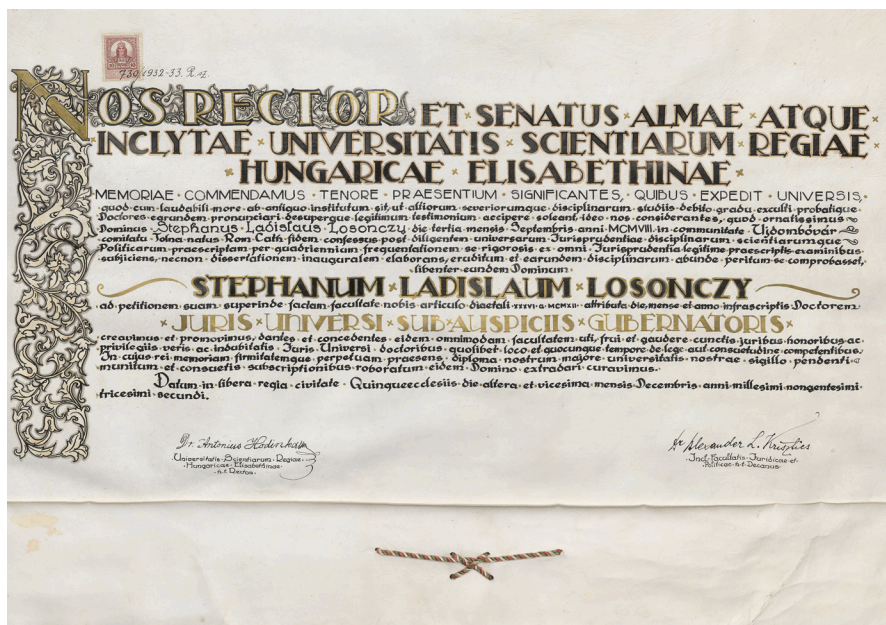 730/1932-33. R. sz.
NOS RECTOR ET SENATUS ALMAE ATQUE
INCLYTAE UNIVERSITATIS SCIENTIARUM REGIAE
HUNGARICAE ELISABETHINAE
MEMORIAE COMMENDAMUS TENORE PRAESENTIUM SIGNIFICANTES, QUIBUS EXPEDIT UNIVERSIS,
quod cum laudabili more ab antiquo institutum sit, ut alliorum severiorumque disciplinarum studiis debito gradu exculti probatique
Doctores earundem pronunciari desuperque legitimum testimonium accipere soleant, ideo nos considerantes, quod ornatissimus
Dominus Stephanus Ladislaus Losonczy die tertia mensis Septembris anni MCMVIII. in communitate Ujdombóvár
comitatu Tolna natus Rom. Cath. fidem confessus post diligentem universarum Jurisprudentiae disciplinarum scientiarumque
Politicarum praescriptam per quadriennium frequentationem se rigorosis ex omni Jurisprudentia legitime praescriptis examinibus
subjiciens, necnon dissertationem inauguralem elaborans, eruditum et earundem disciplinarum abunde peritum se comprobasset,
libenter eundem Dominum
STEPHANUM LADISLAUM LOSONCZY
ad petitionem suam superinde factam facultate nobis articulo diaetali XXXVI. a. MCMXII. attributa die, mense et anno infrascriptis Doctorem
JURIS UNIVERSI SUB AUSPICIIS GUBERNATORIS
creavimus et pronovimus, dantes et concedentes eidem omnimodam facultatem uti, frui et gaudere cunctis juribus honoribus ac
privilegiis veris ac indubitatis Juris Universi doctoribus quolibet loco et quocunque tempore de lege aut consuetudine competentibus.
In cujus rei memoriam firmitatemque perpetuam praesens diploma nostrum majore universitatis nostrae sigillo pendenti
munitum et consuetis subscriptionibus roboratum eidem Domino extradari curavimus.
Datum in libera regia civitate Quinqueecclesiis die altera et vicesima mensis Decembris anni millesimi nongentesimi
tricesimi secundi.
Dr. Antonius Hodinka
Universitatis Scientiarum Regiae
Hungaricae Elisabethinae
h. t. Rector.
Dr Alexander L. Krisztics
Incl. Facultatis Juridicae et
Politicae h. t. Decanus